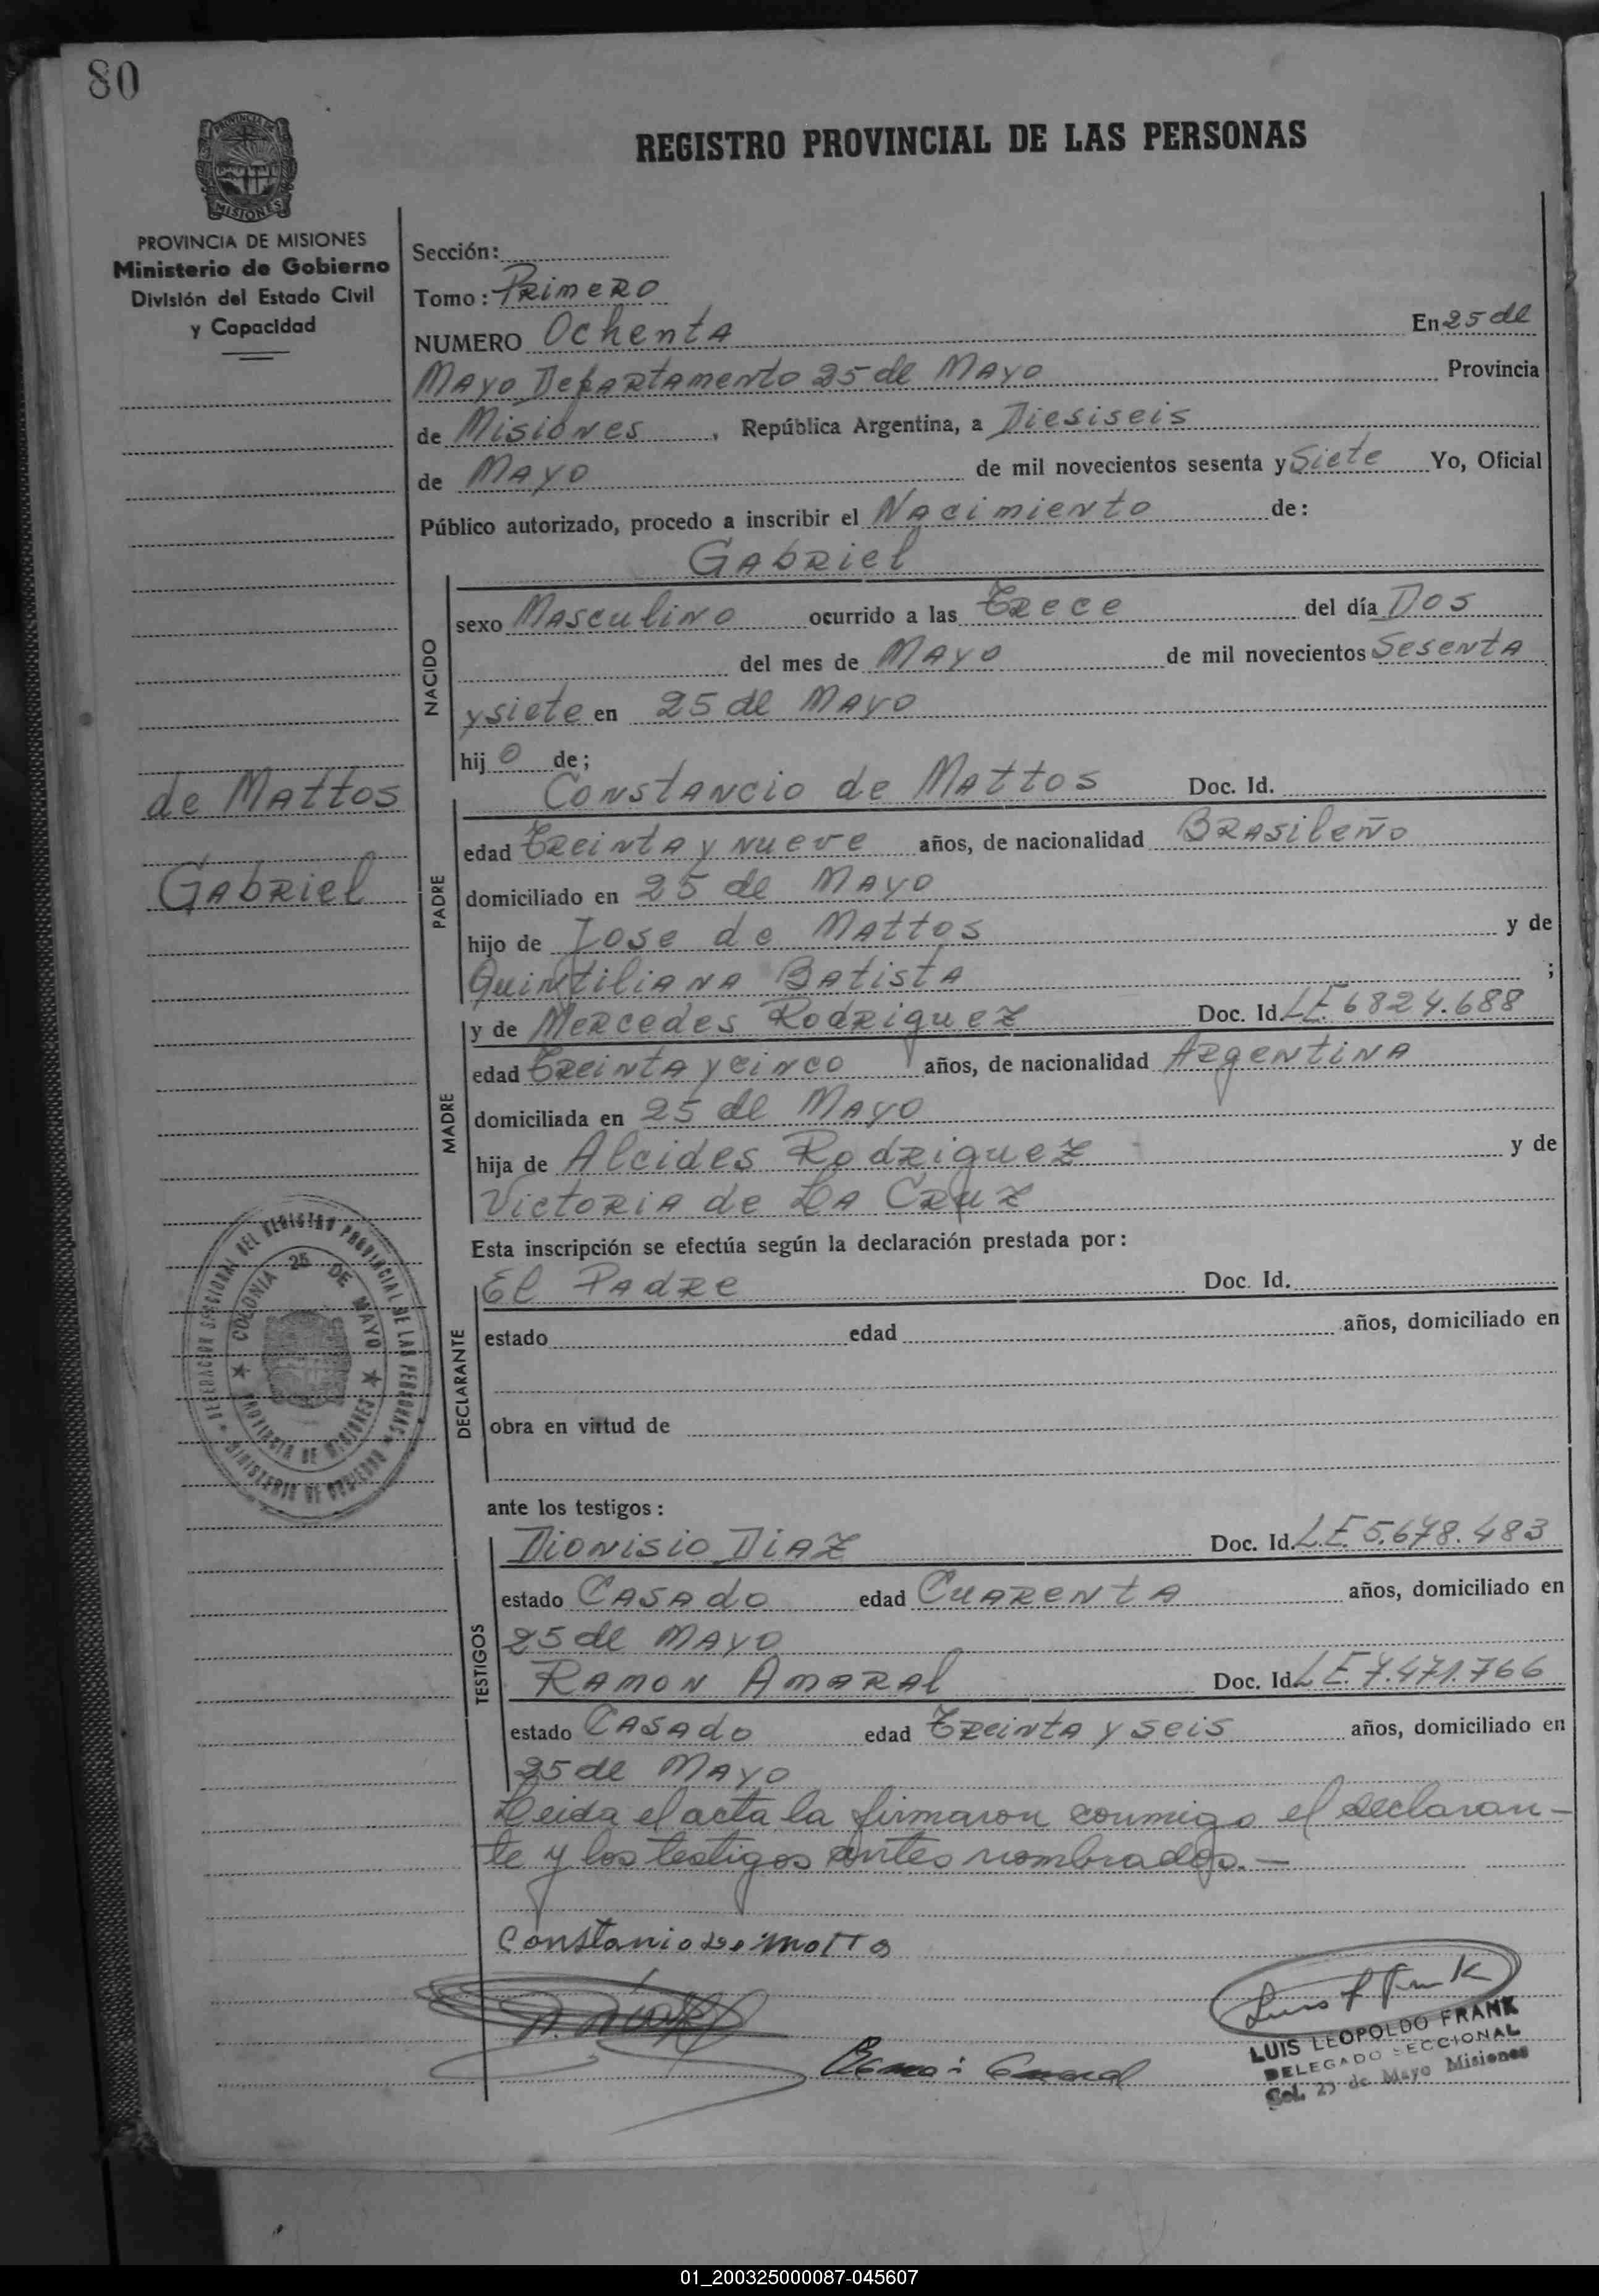 80
PROVINCIA DE MISIONES
REGISTRO PROVINCIAL DE LAS PERSONAS
PROVINCIA DE MISIONES
Ministerio de Gobierno
División del Estado Civil
y Capacidad
Sección:
Tomo: Primero
NUMERO Ochenta En 25 de
Mayo Departamento 25 de Mayo Provincia
de Misiones, República Argentina, a Diesiseis
de Mayo de mil novecientos sesenta y Siete Yo, Oficial
Público autorizado, procedo a inscribir el Nacimiento de:
Gabriel
NACIDO
sexo Masculino ocurrido a las Trece del día Dos
del mes de Mayo de mil novecientos Sesenta
y siete en 25 de Mayo
hijo de;
de Mattos
Gabriel
PADRE
Constancio de Mattos Doc. Id.
edad Treinta y nueve años, de nacionalidad Brasileño
domiciliado en 25 de Mayo
hijo de Jose de Mattos y de
Quintiliana Batista ;
MADRE
y de Mercedes Rodriguez Doc. Id. LE. 6824.688
edad Treinta y cinco años, de nacionalidad Argentina
domiciliada en 25 de Mayo
hija de Alcides Rodriguez y de
Victoria de La Cruz
Esta inscripción se efectúa según la declaración prestada por:
DECLARANTE
El Padre Doc. Id.
estado edad años, domiciliado en
obra en virtud de
DELEGACION SECCIONAL DEL REGISTRO PROVINCIAL DE LAS PERSONAS
MINISTERIO DE GOBIERNO
COLONIA 25 DE MAYO
PROVINCIA DE MISIONES
ante los testigos:
TESTIGOS
Dionisio Diaz Doc. Id. L.E. 5.678.483
estado Casado edad Cuarenta años, domiciliado en
25 de Mayo
Ramon Amaral Doc. Id. LE. 7.471.766
estado Casado edad Treinta y seis años, domiciliado en
25 de Mayo
Leida el acta la firmaron conmigo el declaran-
te y los testigos antes nombrados.-
Constanio de Motto
Luis L Frank
LUIS LEOPOLDO FRANK
DELEGADO SECCIONAL
Col. 25 de Mayo Misiones
01_200325000087-045607